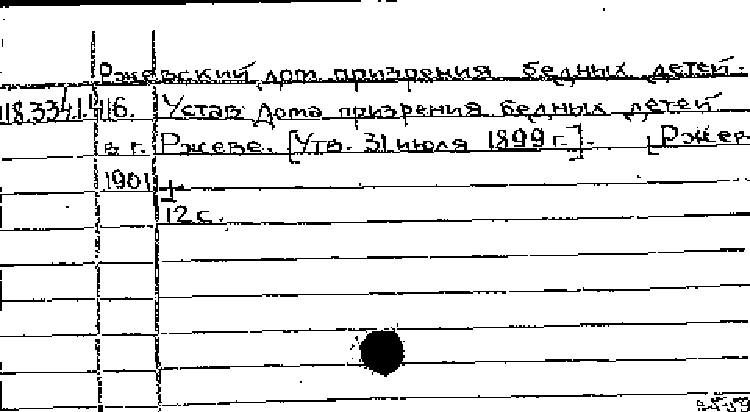 Ржевский дом призрения бедных детей.
118.334.1.116. Устав Дома призрения бедных детей
в г. Ржеве. [Утв. 31 июля 1899 г.]. [Ржев.
1901]
12 с.